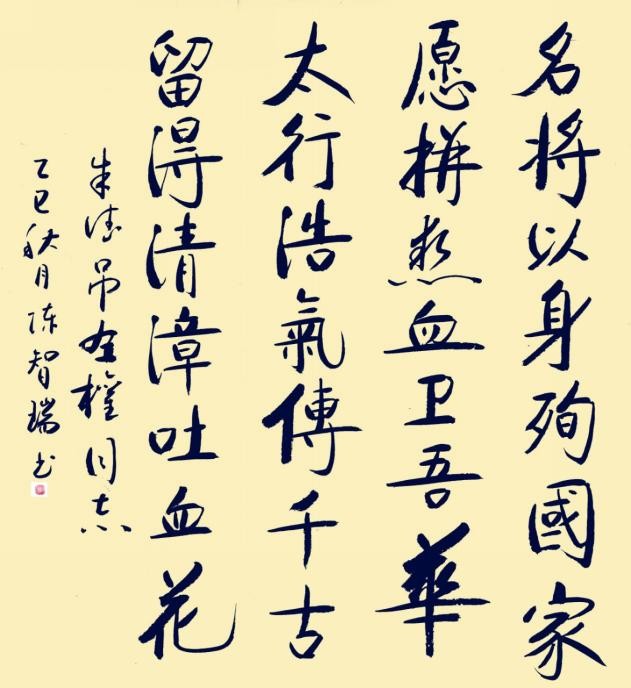 名将以身殉國家
愿拼热血卫吾華
太行浩氣傳千古
留得清漳吐血花
朱德吊左權同志
乙巳秋月陈智瑞书